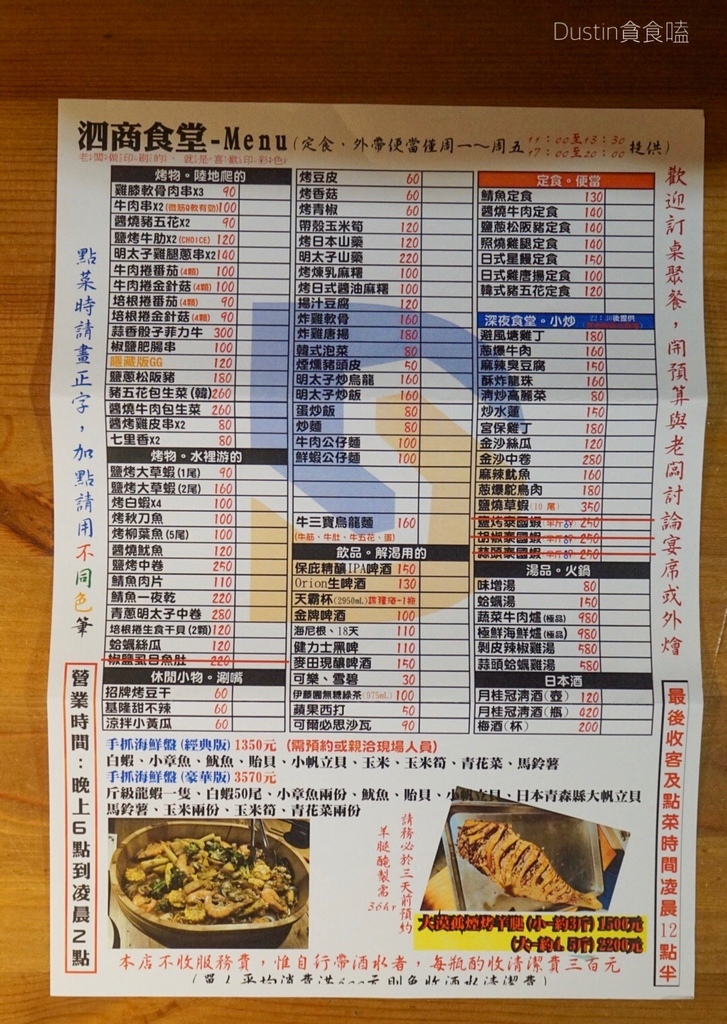 Dustin貪食嗑
泗商食堂-Menu(定食、外帶便當僅周一~周五 11:00至13:30 17:00至20:00 提供)
老闆做印刷的、就是喜歡印彩色
歡迎訂桌聚餐,開預算與老闆討論宴席或外燴
點菜時請畫正字,加點請用不同色筆
烤物。陸地爬的
雞膝軟骨肉串X3 90
牛肉串X2(微筋Q軟有勁)100
醬燒豬五花X2 90
鹽烤牛肋X2(CHOICE) 120
明太子雞腿蔥串X2 140
牛肉捲番茄(4顆) 100
牛肉捲金針菇(4顆) 100
培根捲番茄(4顆) 90
培根捲金針菇(4顆) 90
蒜香骰子菲力牛 300
椒鹽肥腸串 100
隱藏版GG 120
鹽蔥松阪豬 180
豬五花包生菜(韓) 260
醬燒牛肉包生菜 260
醬烤雞皮串X2 80
七里香X2 80
烤物。水裡游的
鹽烤大草蝦(1尾) 90
鹽烤大草蝦(2尾) 160
烤白蝦X4 100
烤秋刀魚 100
烤柳葉魚(5尾) 100
醬燒魷魚 120
鹽烤中卷 250
鯖魚肉片 110
鯖魚一夜乾 220
青蔥明太子中卷 280
培根捲生食干貝(2顆) 120
蛤蠣絲瓜 120
椒鹽虱目魚肚 220
休閒小物。涮嘴
招牌烤豆干 60
基隆甜不辣 60
涼拌小黃瓜 60
烤豆皮 60
烤香菇 60
烤青椒 60
帶殼玉米筍 120
烤日本山藥 120
明太子山藥 220
烤煉乳麻糬 100
烤日式醬油麻糬 100
揚汁豆腐 120
炸雞軟骨 160
炸雞唐揚 180
韓式泡菜 80
煙燻豬頭皮 50
明太子炒烏龍 160
明太子炒飯 160
蛋炒飯 80
炒麵 80
牛肉公仔麵 100
鮮蝦公仔麵 100
牛三寶烏龍麵 160
(牛筋、牛肚、牛五花、蛋)
飲品。解渴用的
保庇精釀IPA啤酒 150
Orion生啤酒 130
天霸杯(2950mL)
金牌啤酒 100
海尼根、18天 110
健力士黑啤 110
麥田現釀啤酒 150
可樂、雪碧 30
伊藤園無糖綠茶(975mL) 100
蘋果西打 50
可爾必思沙瓦 90
定食。便當
鯖魚定食 130
醬燒牛肉定食 140
鹽蔥松阪豬定食 140
照燒雞腿定食 140
日式星鰻定食 150
日式雞唐揚定食 100
韓式豬五花定食 120
深夜食堂。小炒 22:30後提供
避風塘雞丁 180
蔥爆牛肉 160
麻辣臭豆腐 150
酥炸龍珠 160
清炒高麗菜 80
炒水蓮 150
宮保雞丁 180
金沙絲瓜 120
金沙中卷 280
麻辣魷魚 160
蔥爆鴕鳥肉 180
鹽燒草蝦(10尾) 350
鹽烤泰國蝦(半斤8P) 250
胡椒泰國蝦(半斤8P) 250
蒜頭泰國蝦(半斤8P) 250
湯品。火鍋
味增湯 80
蛤蠣湯 150
蔬菜牛肉爐(極品) 980
極鮮海鮮爐(極品) 980
剝皮辣椒雞湯 580
蒜頭蛤蠣雞湯 580
日本酒
月桂冠清酒(壺) 120
月桂冠清酒(瓶) 420
梅酒(杯) 200
手抓海鮮盤(經典版) 1350元 (需預約或親洽現場人員)
白蝦、小章魚、魷魚、貽貝、小帆立貝、玉米、玉米筍、青花菜、馬鈴薯
手抓海鮮盤(豪華版) 3570元
斤級龍蝦一隻、白蝦50尾、小章魚兩份、魷魚、貽貝、小帆立貝、日本青森縣大帆立貝
馬鈴薯、玉米兩份、玉米筍、青花菜兩份
請務必於三天前預約
羊腿醃製需36hr
大漠孤煙烤羊腿(小-約3斤) 1500元
(大-約4.5斤) 2200元
營業時間:晚上6點到凌晨2點
最後收客及點菜時間凌晨12點半
本店不收服務費,惟自行帶酒水者,每瓶酌收清潔費三百元